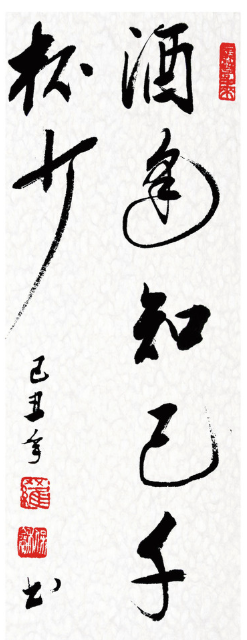 酒逢知己千
杯少
己丑年
书